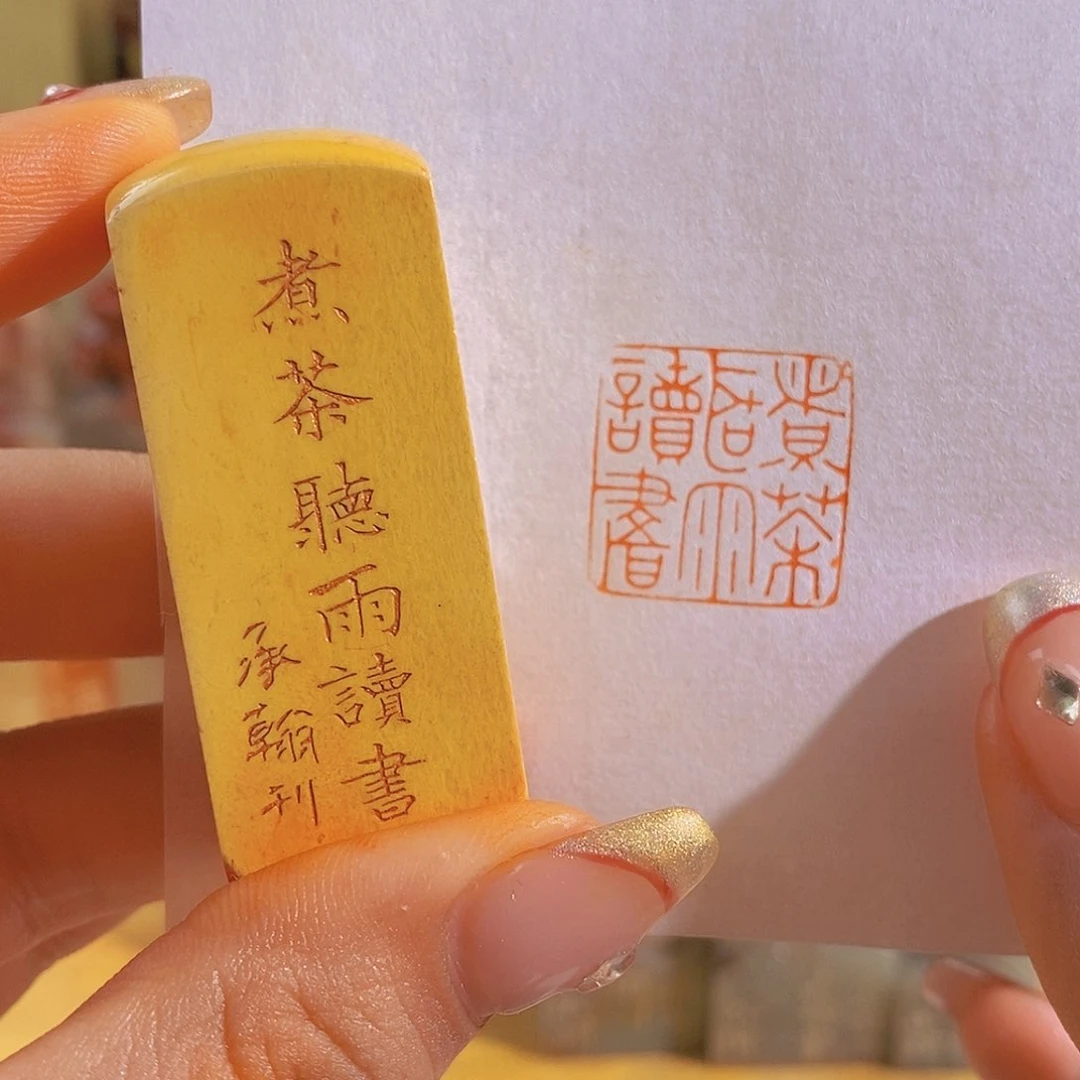 煮茶聽雨讀書
承翰刊
煮茶
聽雨
讀書